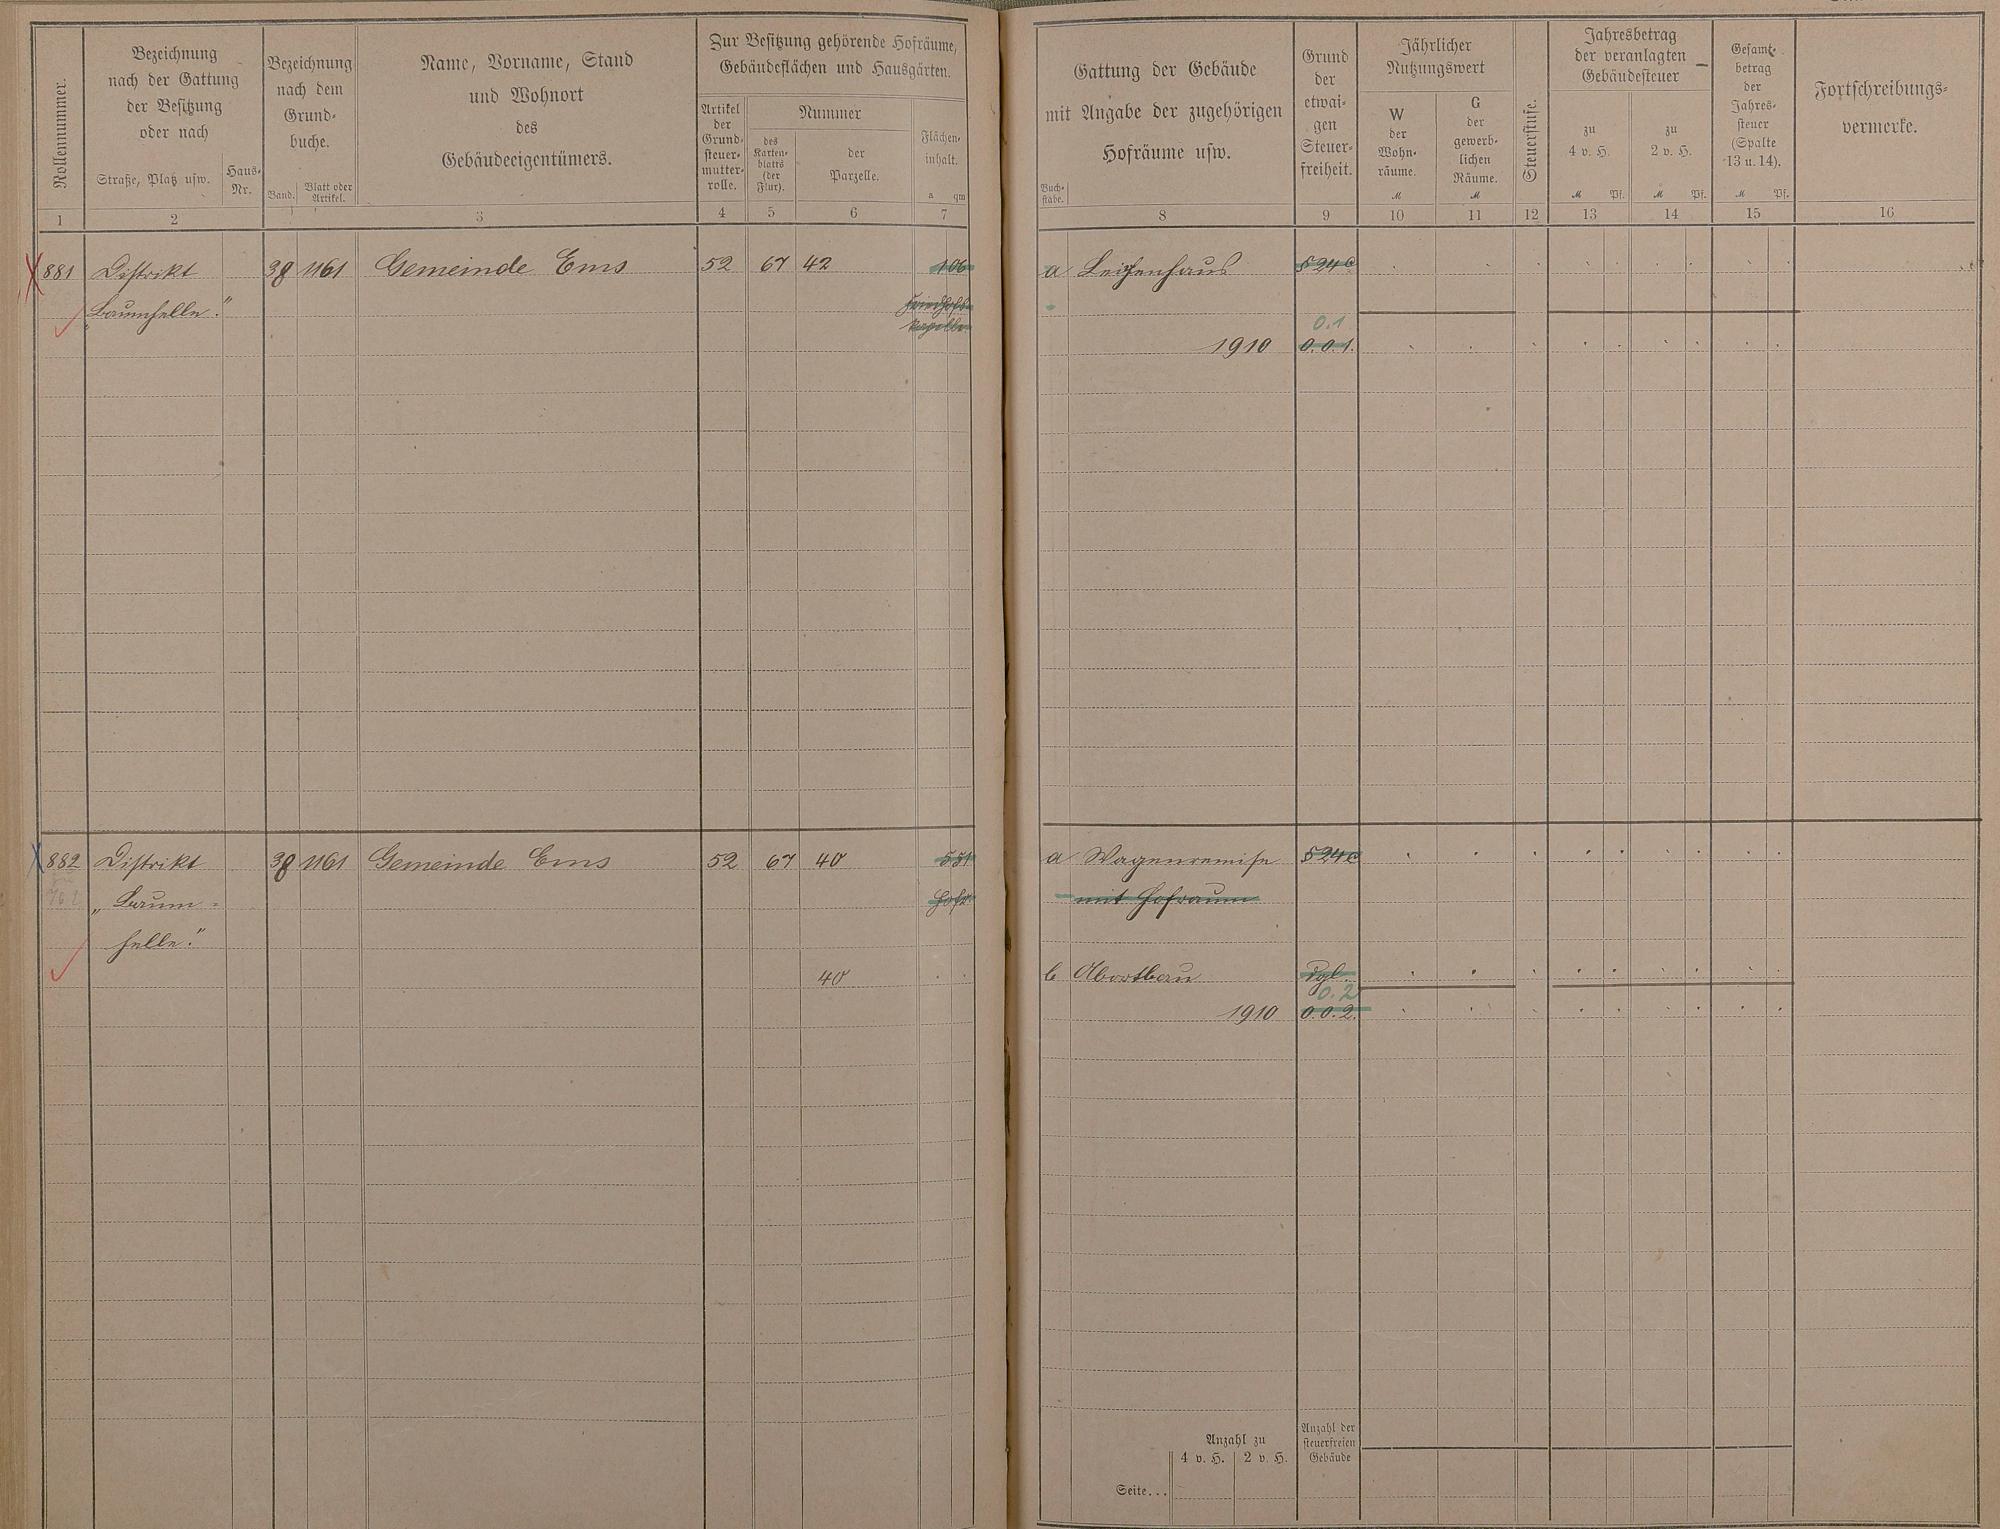 Rollennummer.
Bezeichnung
nach der Gattung
der Besitzung
oder nach
Straße, Platz usw.
Haus-
Nr.
Bezeichnung
nach dem
Grund-
buche.
Band.
Blatt oder
Artikel.
Name, Vorname, Stand
und Wohnort
des
Gebäudeeigentümers.
Zur Besitzung gehörende Hofräume,
Gebäudeflächen und Hausgärten.
Artikel
der
Grund-
steuer-
mutter-
rolle.
Nummer
des
Karten-
blatts
(der
Flur).
der
Parzelle.
Flächen-
inhalt.
a qm
1 2 3 4 5 6 7
881 Distrikt 38 1161 Gemeinde Ems 52 67 42 106
„Baumhelle." Friedhofs-
kapelle
882 Distrikt 38 1161 Gemeinde Ems 52 67 40 551
„Baum- Hofr.
helle."
40
Gattung der Gebäude
mit Angabe der zugehörigen
Hofräume usw.
Buch-
stabe.
Grund
der
etwai-
gen
Steuer-
freiheit.
Jährlicher
Nutzungswert
W
der
Wohn-
räume.
M
G
der
gewerb-
lichen
Räume.
M
Steuerstufe.
Jahresbetrag
der veranlagten
Gebäudesteuer
zu
4 v. H.
M Pf.
zu
2 v. H.
M Pf.
Gesamt-
betrag
der
Jahres-
steuer
(Spalte
13 u. 14).
M Pf.
Fortschreibungs-
vermerke.
8 9 10 11 12 13 14 15 16
a Leichenhaus § 24 c
0.1
1910 0.0.1.
a Wagenremise § 24 c
mit Hofraum
b Abortbau dgl.
0.2
1910 0.0.2.
Anzahl zu
4 v. H. 2 v. H.
Anzahl der
steuerfreien
Gebäude
Seite...